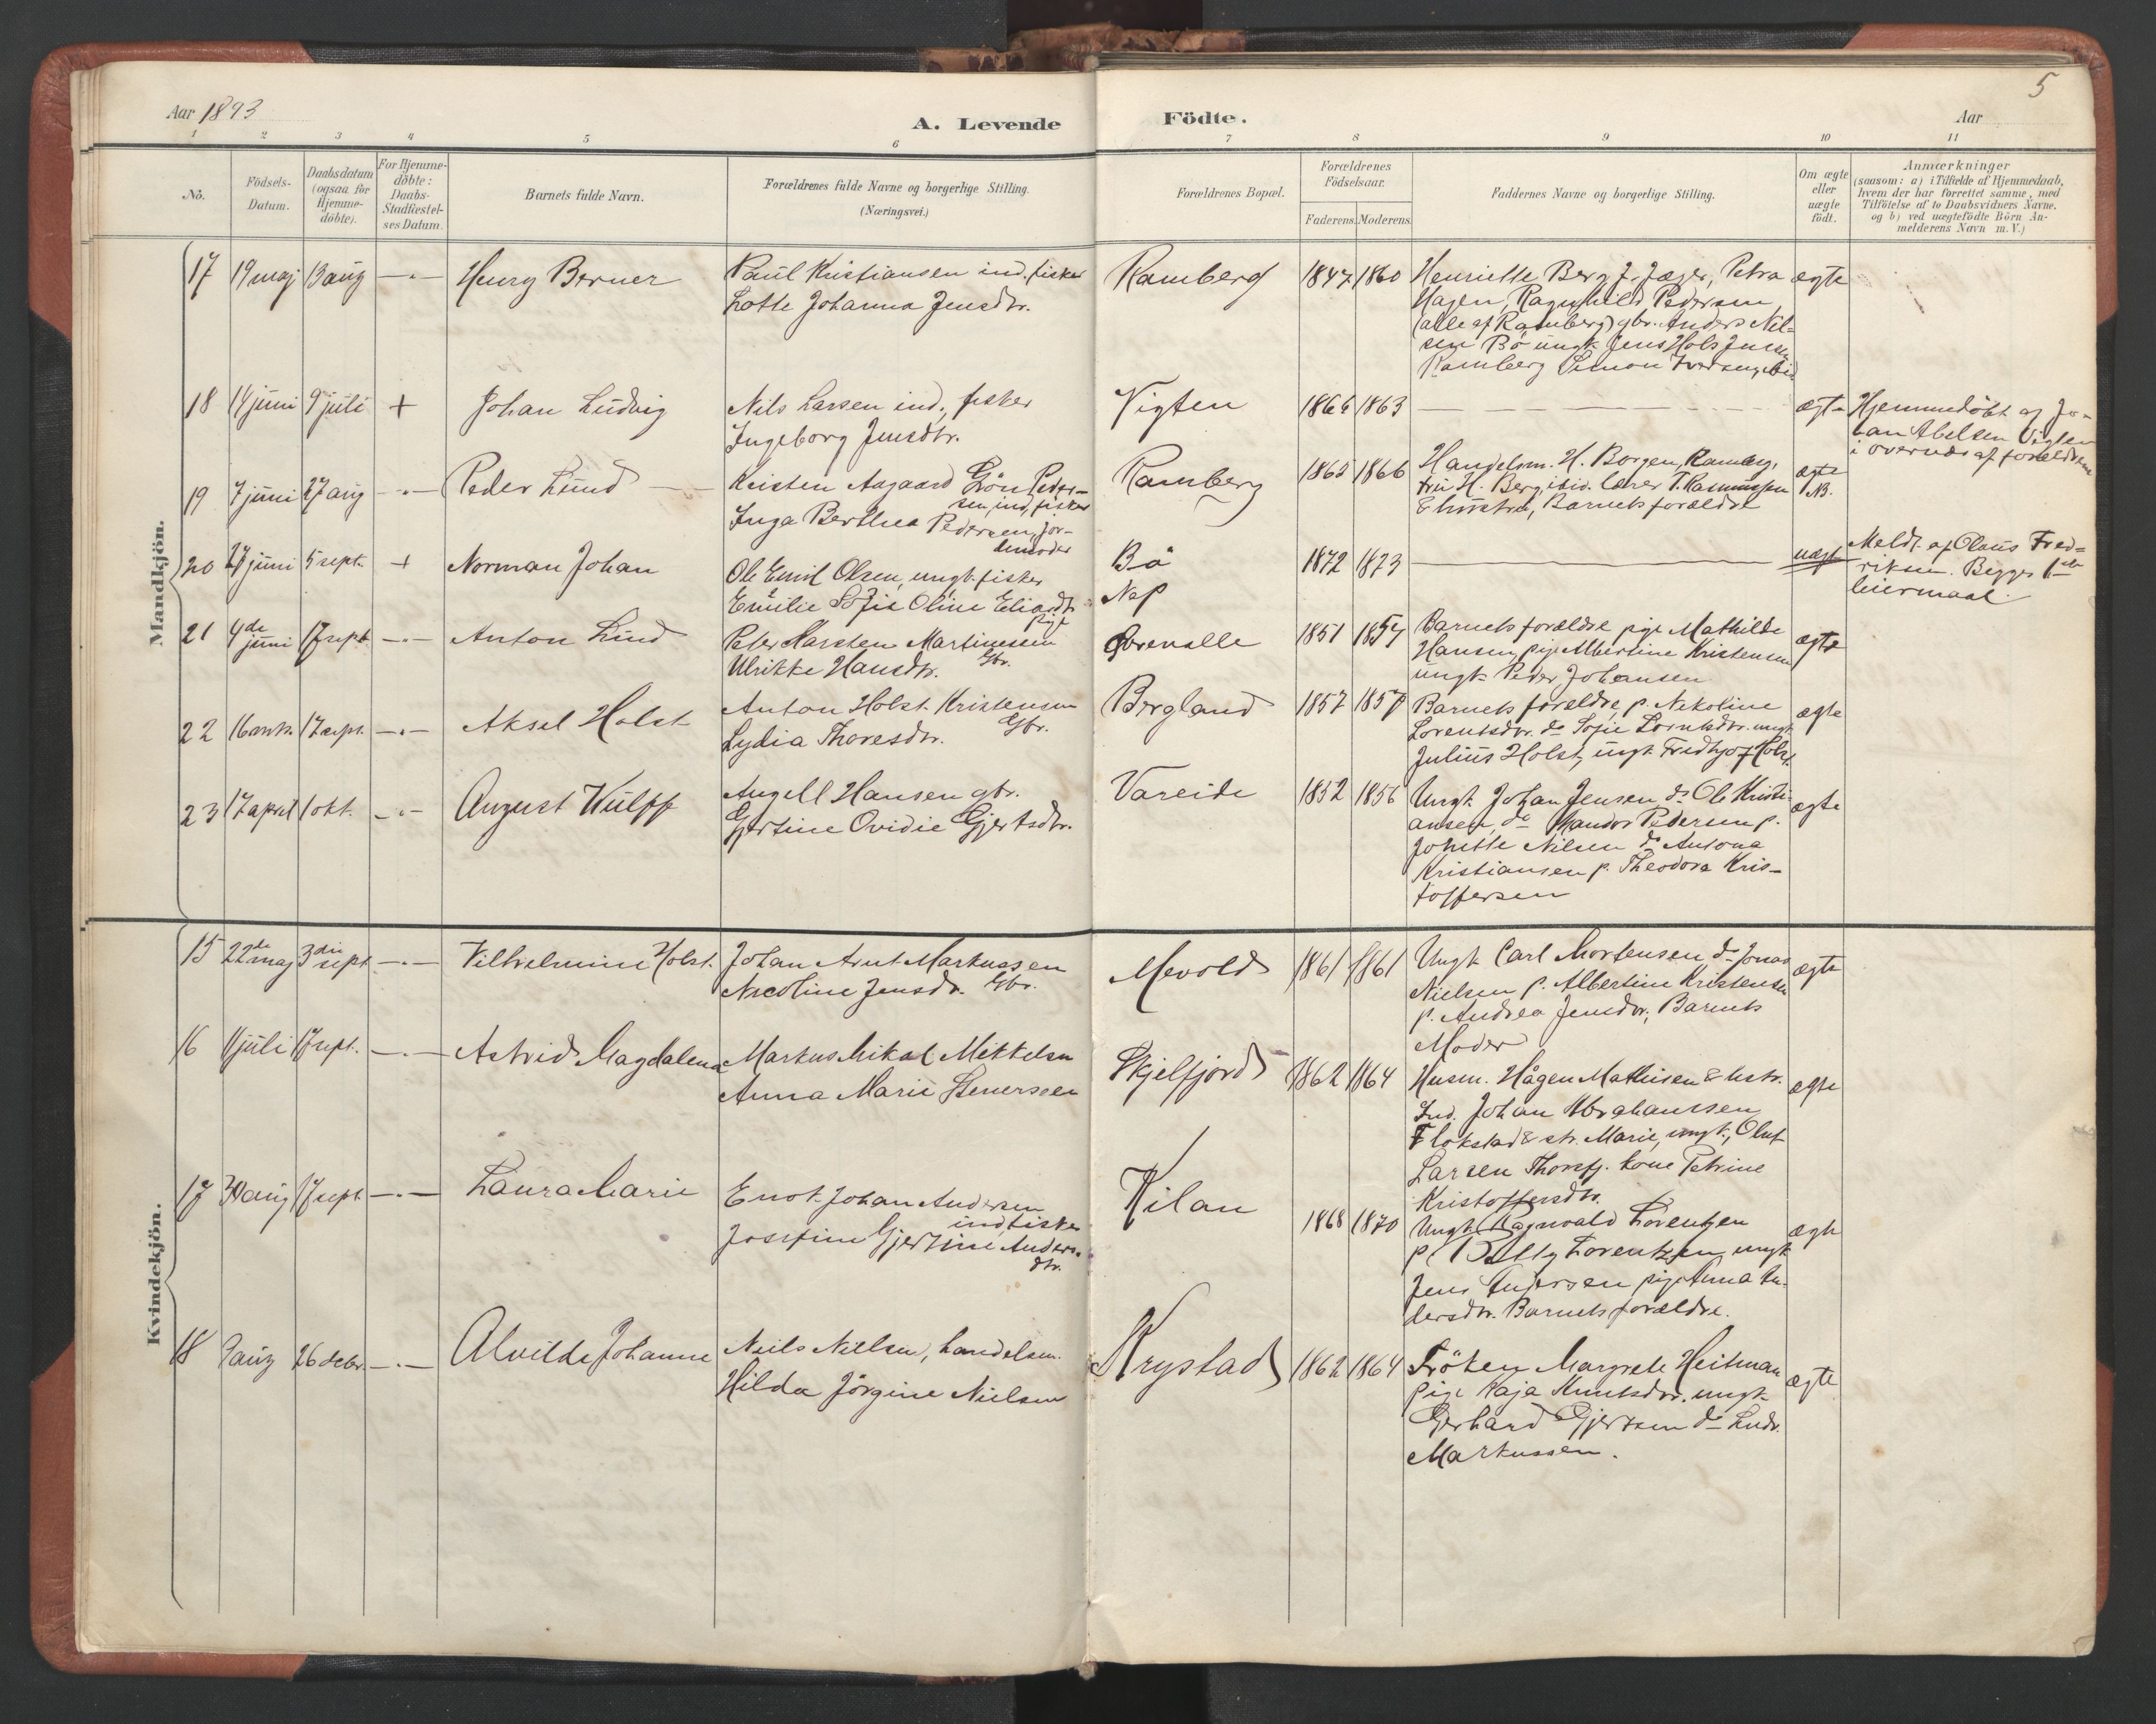 Aar 1893
A. Levende Födte.
Aar
5
1 2 3 4 5 6 7 8 9 10 11
No.
Födsels-Datum.
Daabsdatum (ogsaa for Hjemme-döbte).
For Hjemme-döbte: Daabs-Stadfæstel-ses Datum.
Barnets fulde Navn.
Forældrenes fulde Navne og borgerlige Stilling. (Næringsvei.)
Forældrenes Bopæl.
Forældrenes Födselsaar.
Faderens. Moderens.
Faddernes Navne og borgerlige Stilling.
Om ægte eller uægte födt.
Anmærkninger
(saasom: a) i Tilfælde af Hjemmedaab,
hvem der har forrettet samme, med
Tilföielse af to Daabsvidners Navne.
og b) ved uægtefödte Börn An-
melderens Navn m. V.)
Mandkjön.
17 19 maj 13 aug —"— Henry Berner
Paul Kristiansen ind. fisker
Lotte Johanna Jensdtr.
Ramberg 1847 1860
Henriette Berg, J. Jæger, Petra
Hagen, Ragnhild Pedersen
(alle af Ramberg) gbr. Anders Nil-
sen Bö ungk. Jens Hols Jensen
Ramberg Simon Iversen, ibid
ægte
18 14 juni 9 juli + Johan Ludvig
Nils Larsen ind., fisker
Ingeborg Jensdtr.
Vigten 1866 1863
ægte
Hjemmedöbt af Jo-
han Abelsen Vigten
i overvær af forældrene
19 7 juni 27 aug —"— Peder Lund
Kristen Aagaard Grön Peder-
sen, ind, fisker
Inga Berthea Pedersen, jor-
demoder
Ramberg 1865 1866
Handelsm. H. Borgen, Ramberg,
fru H. Berg, ibid. lærer T. Rasmussen
& hustru, Barnets forældre
ægte NB.
20 27 juni 5 sept. + Norman Johan
Ole Emil Olsen, ungk. fisker
Emilie Sofie Oline Eliasdtr.
Pige
Bö
Nap
1872 1873
uægt
Meldt af Olaus Fred-
riksen. Begges 1ste
leiermaal.
21 4de juni 17 sept —"— Anton Lund
Peter Marsten Martinussen
Gbr.
Ulrikke Hansdtr.
1851 1857
Barnets forældre pige Mathilde
Hansen, pige Albertine Kristensen
ungk. Peder Johansen
ægte
22 16 17 sept. —"— Aksel Holst
Anton Holst Kristensen
Gbr.
Lydia Thoresdtr.
Bergland 1857 1857
Barnets forældre, p. Nikoline
Lorentsdtr. do Sofie Lorntsdtr. ungk
Julius Holst, ungk. Fredtjof Holst.
ægte
23 17 april 1 okt. —"— August Wülff
Angell Hansen gbr.
Gjertine Ovidie Gjertsdtr.
Vareide 1852 1856
Ungk. Johan Jensen do Ole Kristi-
ansen, do Mandor Pedersen p.
Johette Nilsen do Antona
Kristiansen p. Theodora Kris-
toffersen
ægte
Kvindekjön.
15 22de maj 3die sept —"— Vilhelmine Holst.
Johan Arnt Markussen
Gbr.
Nicoline Jensdtr.
Mevold 1861 1861
Ungk. Carl Mortensen do Jonas
Nielsen p. Albertine Kristensen
p. Andrea Jensdtr, Barnets
Moder
ægte
16 1 juli 17 sept. —"— Astrid Magdalena
Markus Mikal Mikkelsen
Anna Marie Stenersen
Skjelfjord 1862 1864
Husm. Hågen Mathisen & hstr.
Ind. Johan Abrahamsen
Flakstad & str. Marie, ungk., Oluf
Larsen Thorsfj. kone Petrine
Kristoffersdtr.
ægte
17 30 aug 17 sept. —"— Laura Marie
Enok Johan Andersen
ind, fisker
Josefine Gjertine Anders-
dtr.
Kilan 1868 1870
Ungk. Ragnvald Lorentzen
p. Betty Lorentzen, ungk
Jens Andersen pige Anna An-
dersdtr. Barnets forældre.
ægte
18 9 aug 26 debr. —"— Alvilde Johanne
Neils Nielsen, handelsm.
Hilda Jörgine Nielsen
Krystad 1862 1864
Fröken Margrete Heitman
Pige Kaja Knutsdtr. ungk
Gerhard Gjertsen do Ludv.
Markussen.
ægte